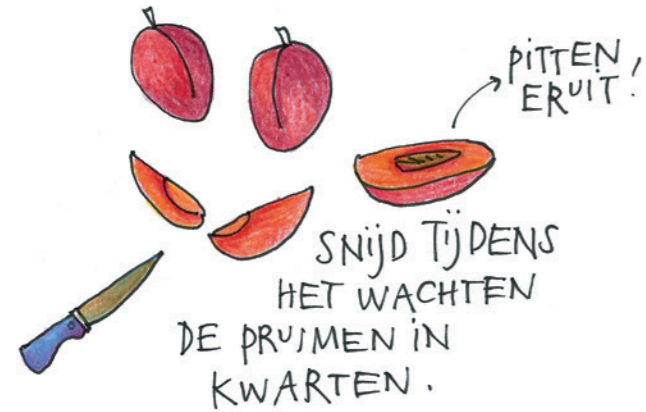 PITTEN
ERUIT!
SNIJD TIJDENS
HET WACHTEN
DE PRUIMEN IN
KWARTEN.